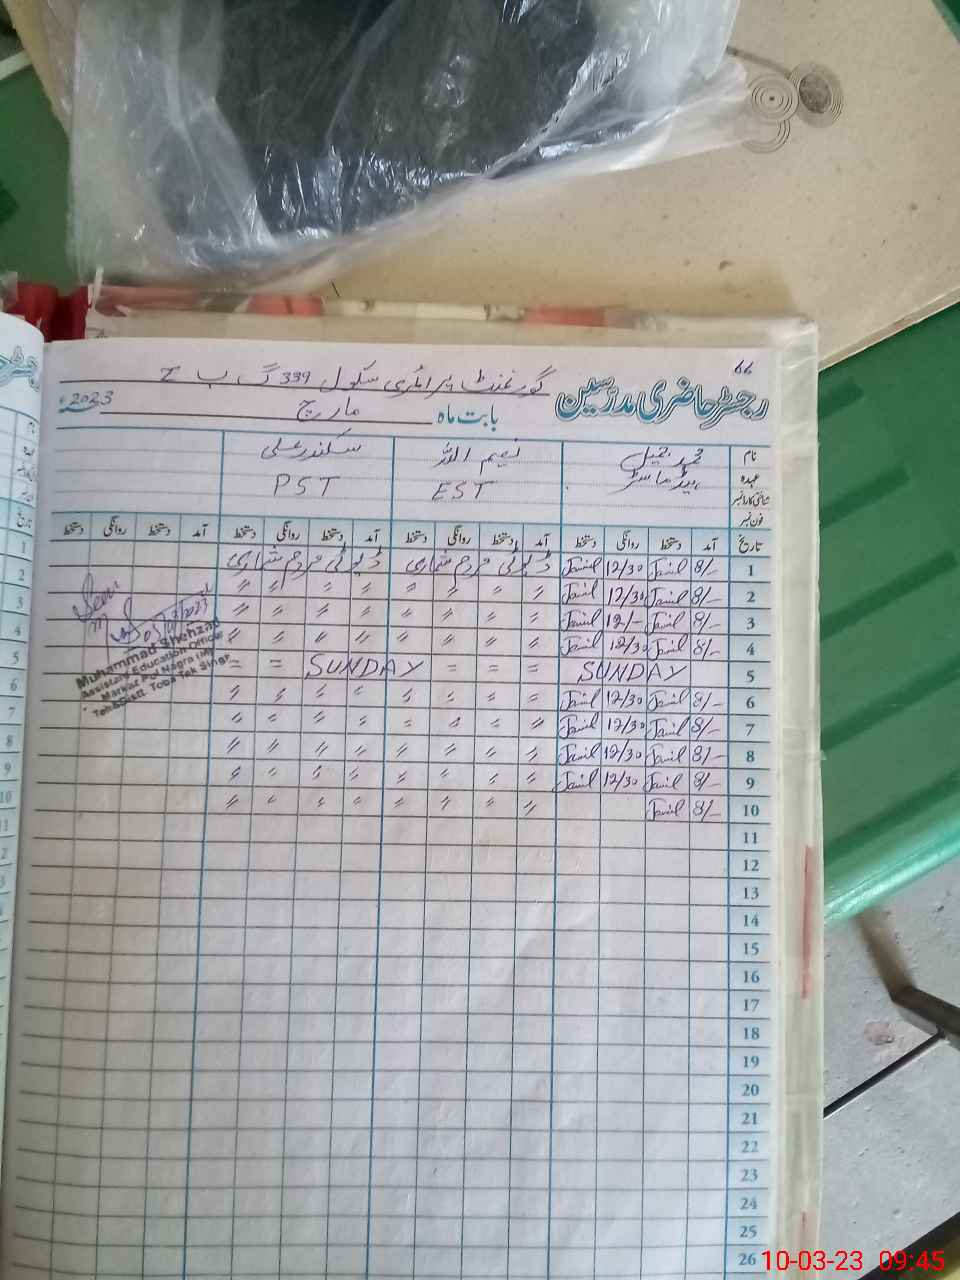 66
گورنمنٹ پرائمری سکول 339 گ ب
رجسٹر حاضری مدرسین
بابت ماہ مارچ 2023ء
نام محمد جمیل نسیم اللہ سکندر علی
عہدہ ہیڈ ماسٹر EST PST
شناختی کارڈ نمبر
فون نمبر
تاریخ آمد دستخط روانگی دستخط آمد دستخط روانگی دستخط آمد دستخط روانگی دستخط آمد دستخط روانگی دستخط
1 8/- Jamil 12/30 Jamil ڈیوٹی مردم شماری ڈیوٹی مردم شماری
2 8/- Jamil 12/30 Jamil 〃 〃 〃 〃 〃 〃 〃 〃
3 8/- Jamil 12/- Jamil 〃 〃 〃 〃 〃 〃 〃 〃
4 8/- Jamil 12/30 Jamil 〃 〃 〃 〃 〃 〃 〃 〃
5 SUNDAY = = = SUNDAY = =
6 8/- Jamil 12/30 Jamil 〃 〃 〃 〃 〃 〃 〃 〃
7 8/- Jamil 12/30 Jamil 〃 〃 〃 〃 〃 〃 〃 〃
8 8/- Jamil 12/30 Jamil 〃 〃 〃 〃 〃 〃 〃 〃
9 8/- Jamil 12/30 Jamil 〃 〃 〃 〃 〃 〃 〃 〃
10 8/- Jamil 〃 〃 〃 〃 〃 〃 〃
11
12
13
14
15
16
17
18
19
20
21
22
23
24
25
26
Seen
Muhammad Shehzad
Assistant Education Officer
Markaz Pul Nagra (M)
Teh&Distt. Toba Tek Singh
10-03-23 09:45